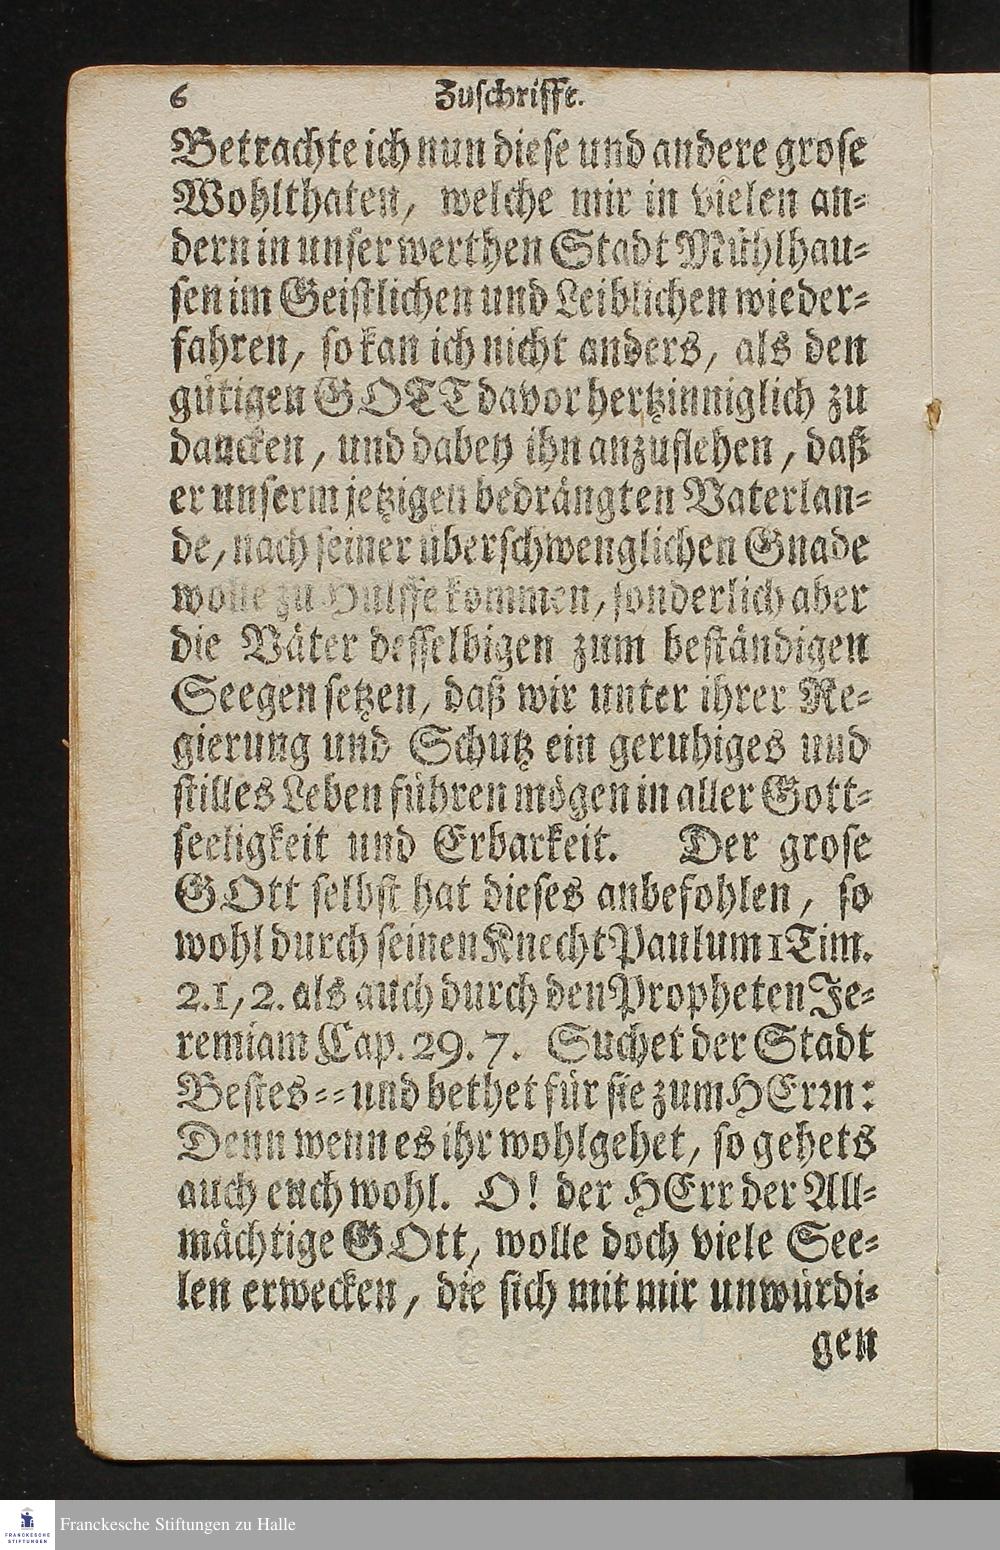 6 Zuschrifft.
Betrachte ich nun diese und andere grose
Wohlthaten, welche mir in vielen an-
dern in unser werthen Stadt Mühlhau-
sen im Geistlichen und Leiblichen wieder-
fahren, so kan ich nicht anders, als den
gütigen GOTT davor hertzinniglich zu
dancken, und dabey ihn anzuflehen, daß
er unserm jetzigen bedrängten Vaterlan-
de, nach seiner überschwenglichen Gnade
wolle zu Hülffe kommen, sonderlich aber
die Väter desselbigen zum beständigen
Seegen setzen, daß wir unter ihrer Re-
gierung und Schutz ein geruhiges und
stilles Leben führen mögen in aller Gott-
seeligkeit und Erbarkeit. Der grose
GOtt selbst hat dieses anbefohlen, so
wohl durch seinen Knecht Paulum 1 Tim.
2.1, 2. als auch durch den Propheten Je-
remiam Cap. 29. 7. Suchet der Stadt
Bestes -- und bethet für sie zum HErrn:
Denn wenn es ihr wohlgehet, so gehets
auch euch wohl. O! der HErr der All-
mächtige GOtt, wolle doch viele See-
len erwecken, die sich mit mir unwürdi-
gen
FRANCKESCHE
STIFTUNGEN
Franckesche Stiftungen zu Halle